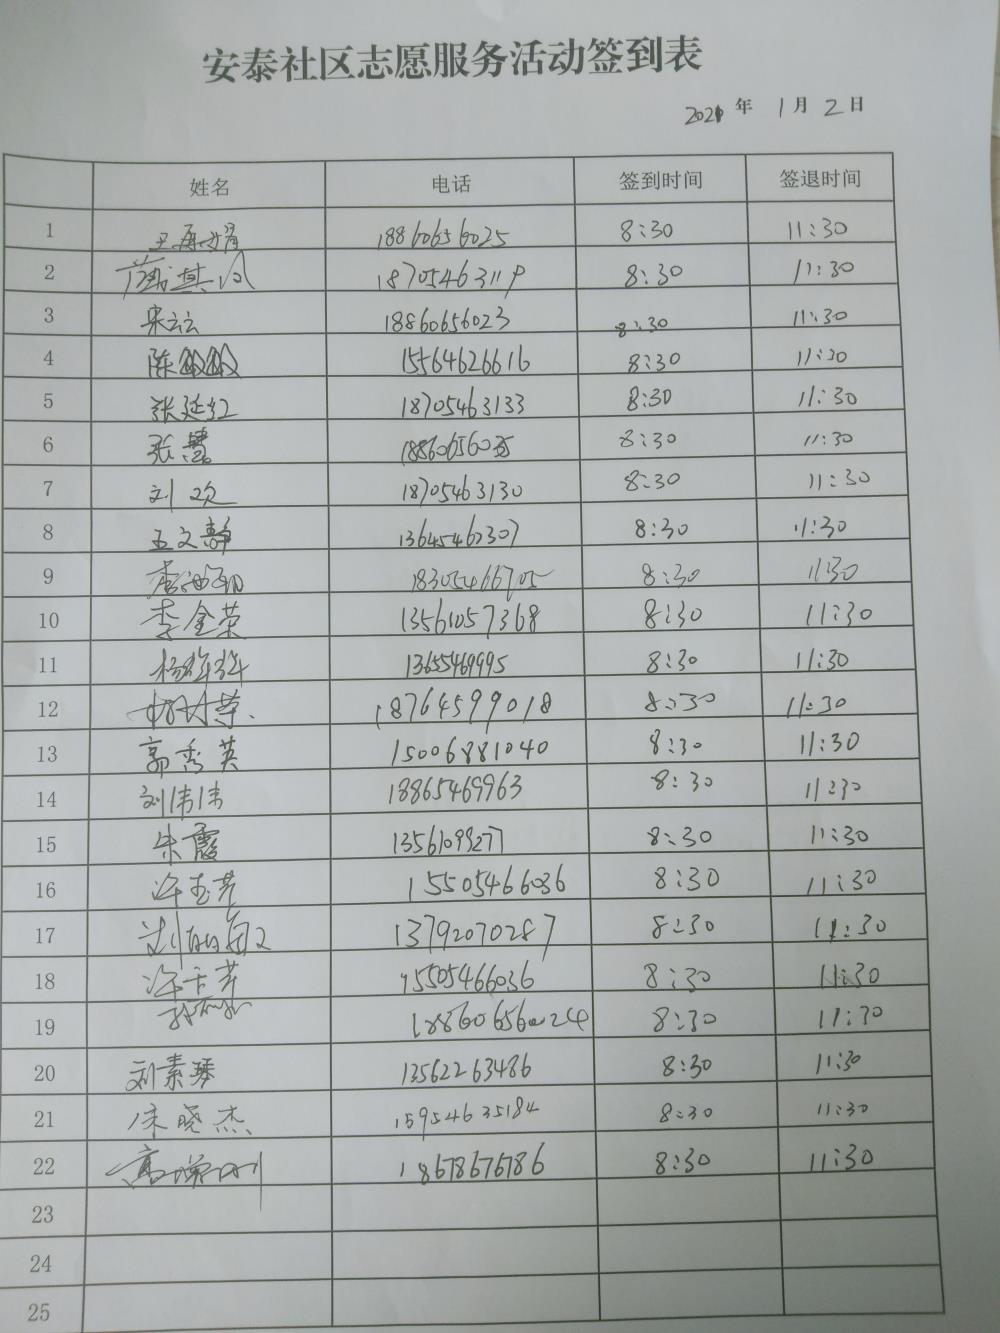 安泰社区志愿服务活动签到表
2021年 1月2日
姓名 电话 签到时间 签退时间
1 王再娟 18860656025 8:30 11:30
2 8:30 11:30
3 宋云云 18860656023 8:30 11:30
4 陈 15564626616 8:30 11:30
5 张廷红 18705463133 8:30 11:30
6 张慧 8:30 11:30
7 刘欢 18705463130 8:30 11:30
8 王文静 13645462307 8:30 11:30
9 18305466705 8:30 11:30
10 李金荣 13561057368 8:30 11:30
11 13655469995 8:30 11:30
12 18764599018 8:30 11:30
13 郭秀英 15006881040 8:30 11:30
14 刘伟伟 18865469963 8:30 11:30
15 朱霞 8:30 11:30
16 15505466036 8:30 11:30
17 13792070287 8:30 11:30
18 15505466036 8:30 11:30
19 8:30 11:30
20 刘素琴 13562263486 8:30 11:30
21 宋晓杰 15954635184 8:30 11:30
22 18678676786 8:30 11:30
23
24
25